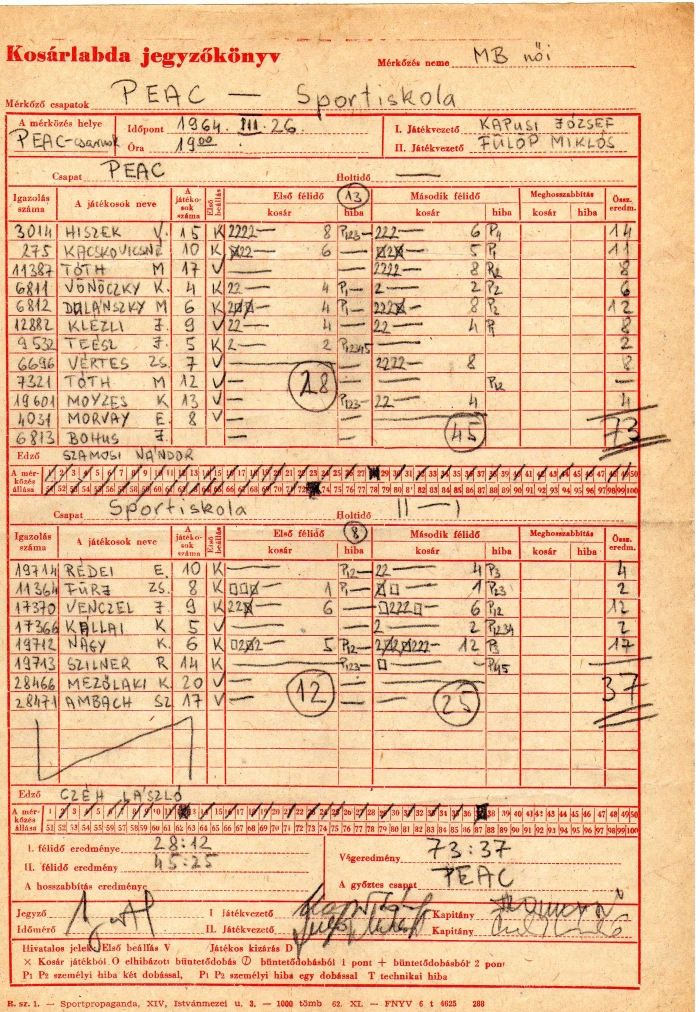 Kosárlabda jegyzőkönyv
Mérkőzés neme MB női
Mérkőző csapatok PEAC — Sportiskola
A mérkőzés helye PEAC-csarnok
Időpont 1964. III. 26.
Óra 19 00
I. Játékvezető KAPUSI JÓZSEF
II. Játékvezető FÜLÖP MIKLÓS
Csapat PEAC Holtidő —
Igazolás száma A játékosok neve A játékosok száma Első beállás Első félidő 13 Második félidő Meghosszabbítás Össz. eredm.
kosár hiba kosár hiba kosár hiba
3014 HISZEK V. 15 K 2222— 8 P123— 222— 6 P4 14
275 KACSKOVICSNÉ 10 K 6 — 5 P1 11
11387 TÓTH M 17 V — — 2222— 8 P2 8
6811 VÖNÖCZKY K. 4 K 22— 4 P1— 2— 2 P2 6
6812 DULÁNSZKY M 6 K 4 P1— 8 P2 12
12882 KLÉZLI J. 9 V 22— 4 — 22— 4 P1 8
9532 TEÉSZ J. 5 K 2— 2 P12345 — 2
6696 VÉRTES ZS. 7 V — 2222— 8 8
7321 TÓTH M 12 V — — — P12 —
19601 MOYZES K 13 V — P123— 22— 4 4
4031 MORVAY E. 8 V — —
6813 BOHUS J. — —
28 45 73
Edző SZAMOSI NÁNDOR
A mérkőzés állása 1 2 3 4 5 6 7 8 9 10 11 12 13 14 15 16 17 18 19 20 21 22 23 24 25 26 27 28 29 30 31 32 33 34 35 36 37 38 39 40 41 42 43 44 45 46 47 48 49 50
51 52 53 54 55 56 57 58 59 60 61 62 63 64 65 66 67 68 69 70 71 72 73 74 75 76 77 78 79 80 81 82 83 84 85 86 87 88 89 90 91 92 93 94 95 96 97 98 99 100
Csapat Sportiskola Holtidő II — I
Igazolás száma A játékosok neve A játékosok száma Első beállás Első félidő 8 Második félidő Meghosszabbítás Össz. eredm.
kosár hiba kosár hiba kosár hiba
19714 RÉDEI E. 10 K — P12— 22 4 P3 4
11364 FÜRJ ZS. 8 K 1 P1— 1 P23 2
17370 VENCZEL J. 9 K 6 — 6 P12 12
17366 KÁLLAI K 5 V — — 2 2 P1234 2
19712 NAGY K. 6 K 5 P12— 12 P3 17
19713 SZILNER R 14 K — P123— P45
28466 MEZŐLAKI K 20 V — —
28471 AMBACH SZ 17 V — —
12 25 37
Edző CZÉH LÁSZLÓ
A mérkőzés állása 1 2 3 4 5 6 7 8 9 10 11 12 13 14 15 16 17 18 19 20 21 22 23 24 25 26 27 28 29 30 31 32 33 34 35 36 37 38 39 40 41 42 43 44 45 46 47 48 49 50
51 52 53 54 55 56 57 58 59 60 61 62 63 64 65 66 67 68 69 70 71 72 73 74 75 76 77 78 79 80 81 82 83 84 85 86 87 88 89 90 91 92 93 94 95 96 97 98 99 100
I. félidő eredménye 28:12
II. félidő eredmény 45:25
A hosszabbítás eredménye
Végeredmény 73:37
A győztes csapat PEAC
Jegyző I Játékvezető Kapitány
Időmérő II. Játékvezető Kapitány
Hivatalos jelek: Első beállás V Játékos kizárás D
× Kosár játékból O elhibázott büntetődobás büntetődobásból 1 pont + büntetődobásból 2 pont
P1 P2 személyi hiba két dobással, P1 P2 személyi hiba egy dobással T technikai hiba
R. sz. 1. — Sportpropaganda, XIV, Istvánmezei u. 3. — 1000 tömb 62. XI. — FNYV 6 t 4625 288